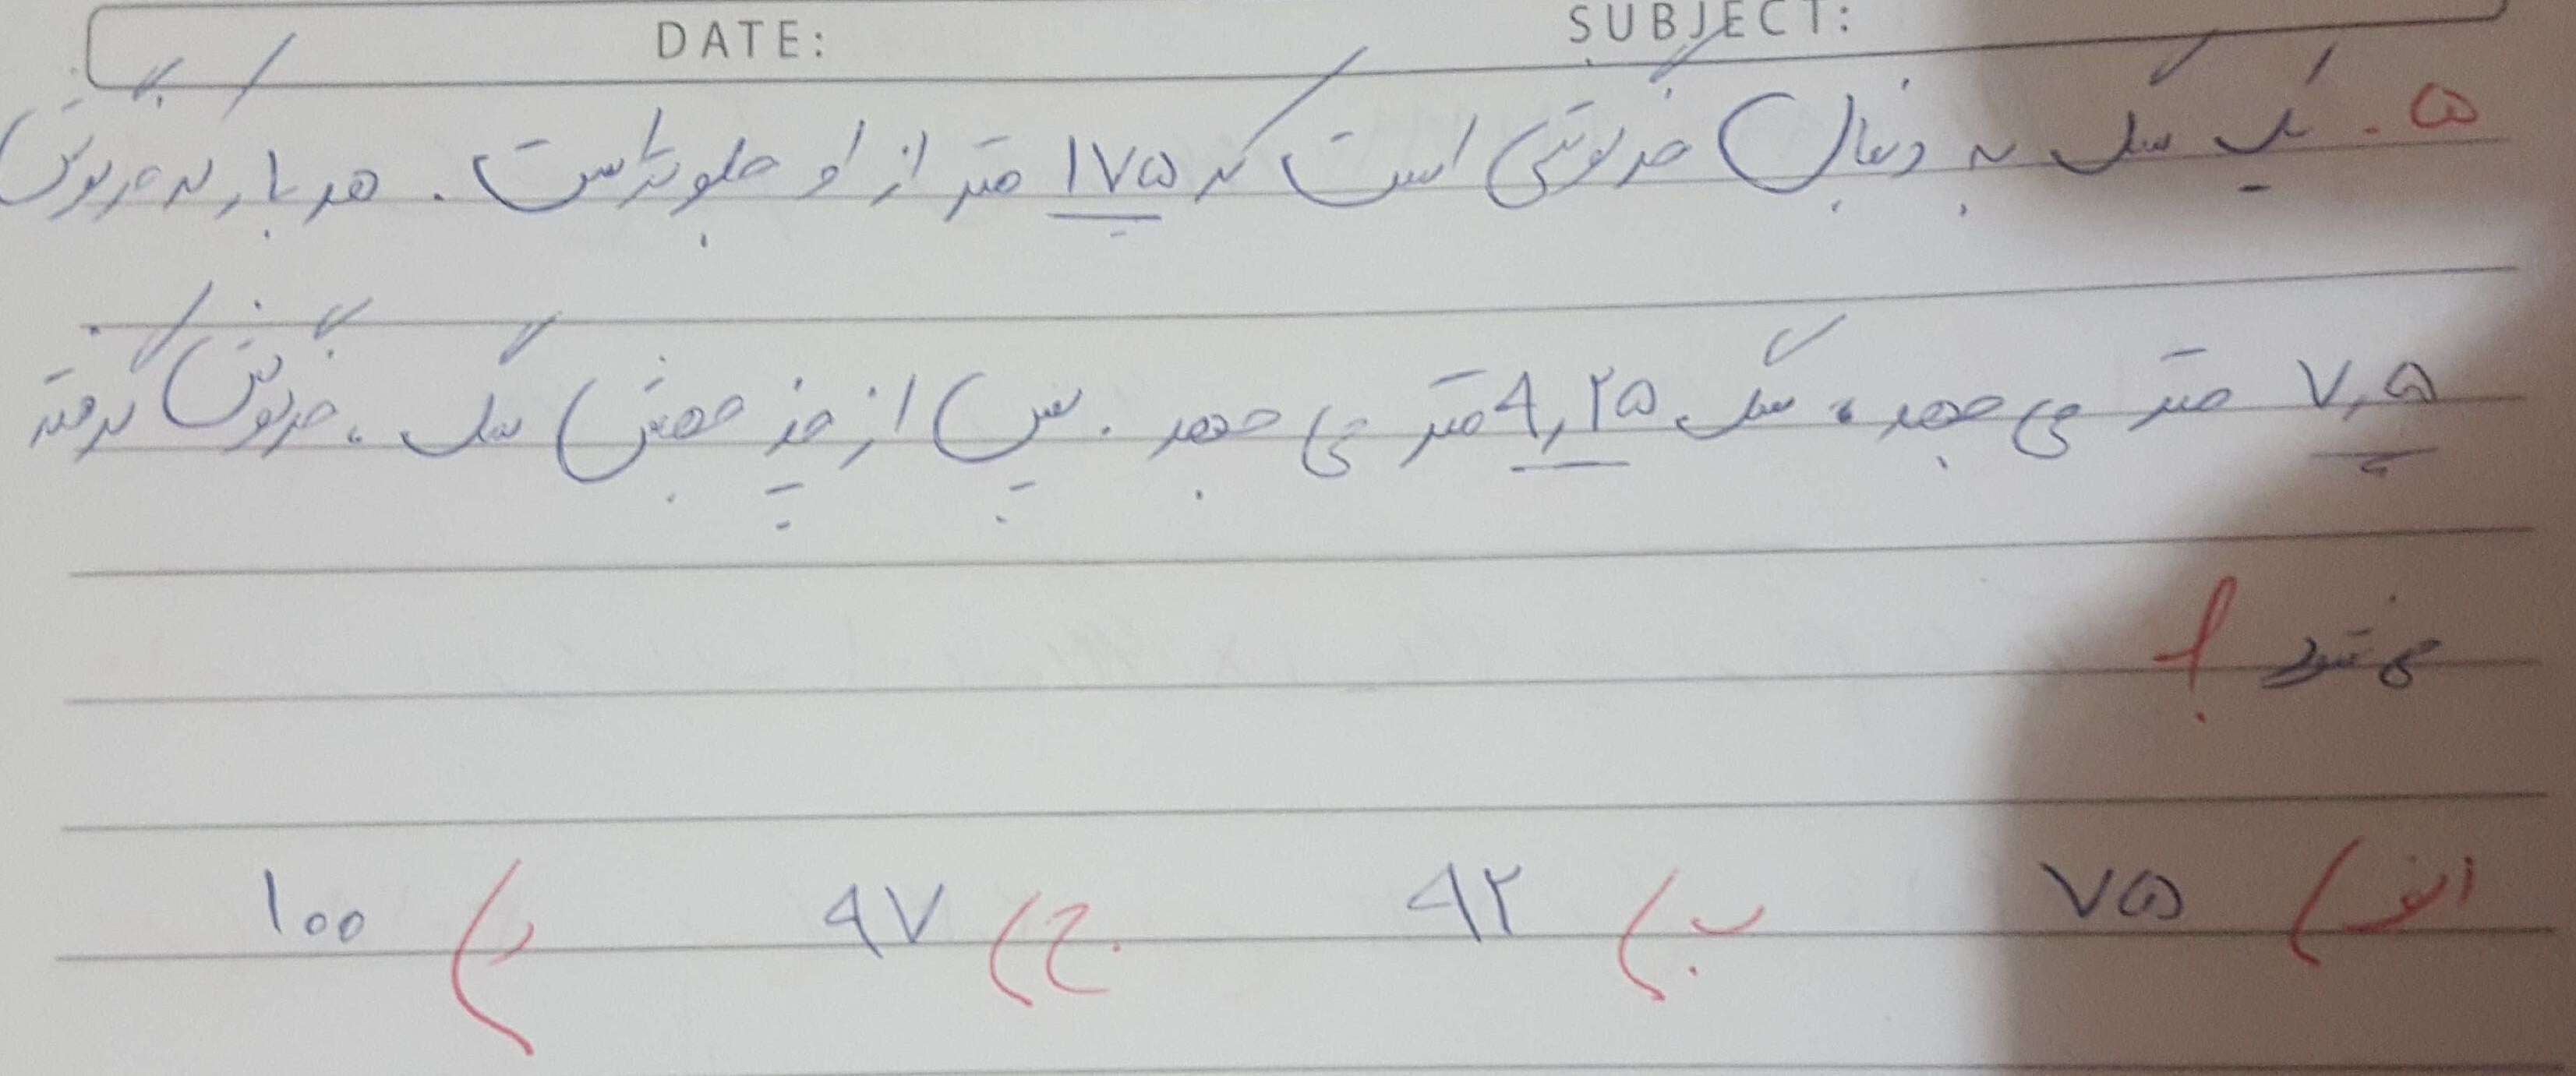 DATE: SUBJECT:
۵. یک سگ به دنبال خرگوشی است که ۱۷۵ متر از او جلوتر است. هر بار که خرگوش
۷,۵ متر می جهد، سگ ۹,۲۵ متر می جهد. پس از چند جهش سگ، خرگوش گرفته
می شود؟
الف) ۷۵ ب) ۹۲ ج) ۹۷ د) ۱۰۰